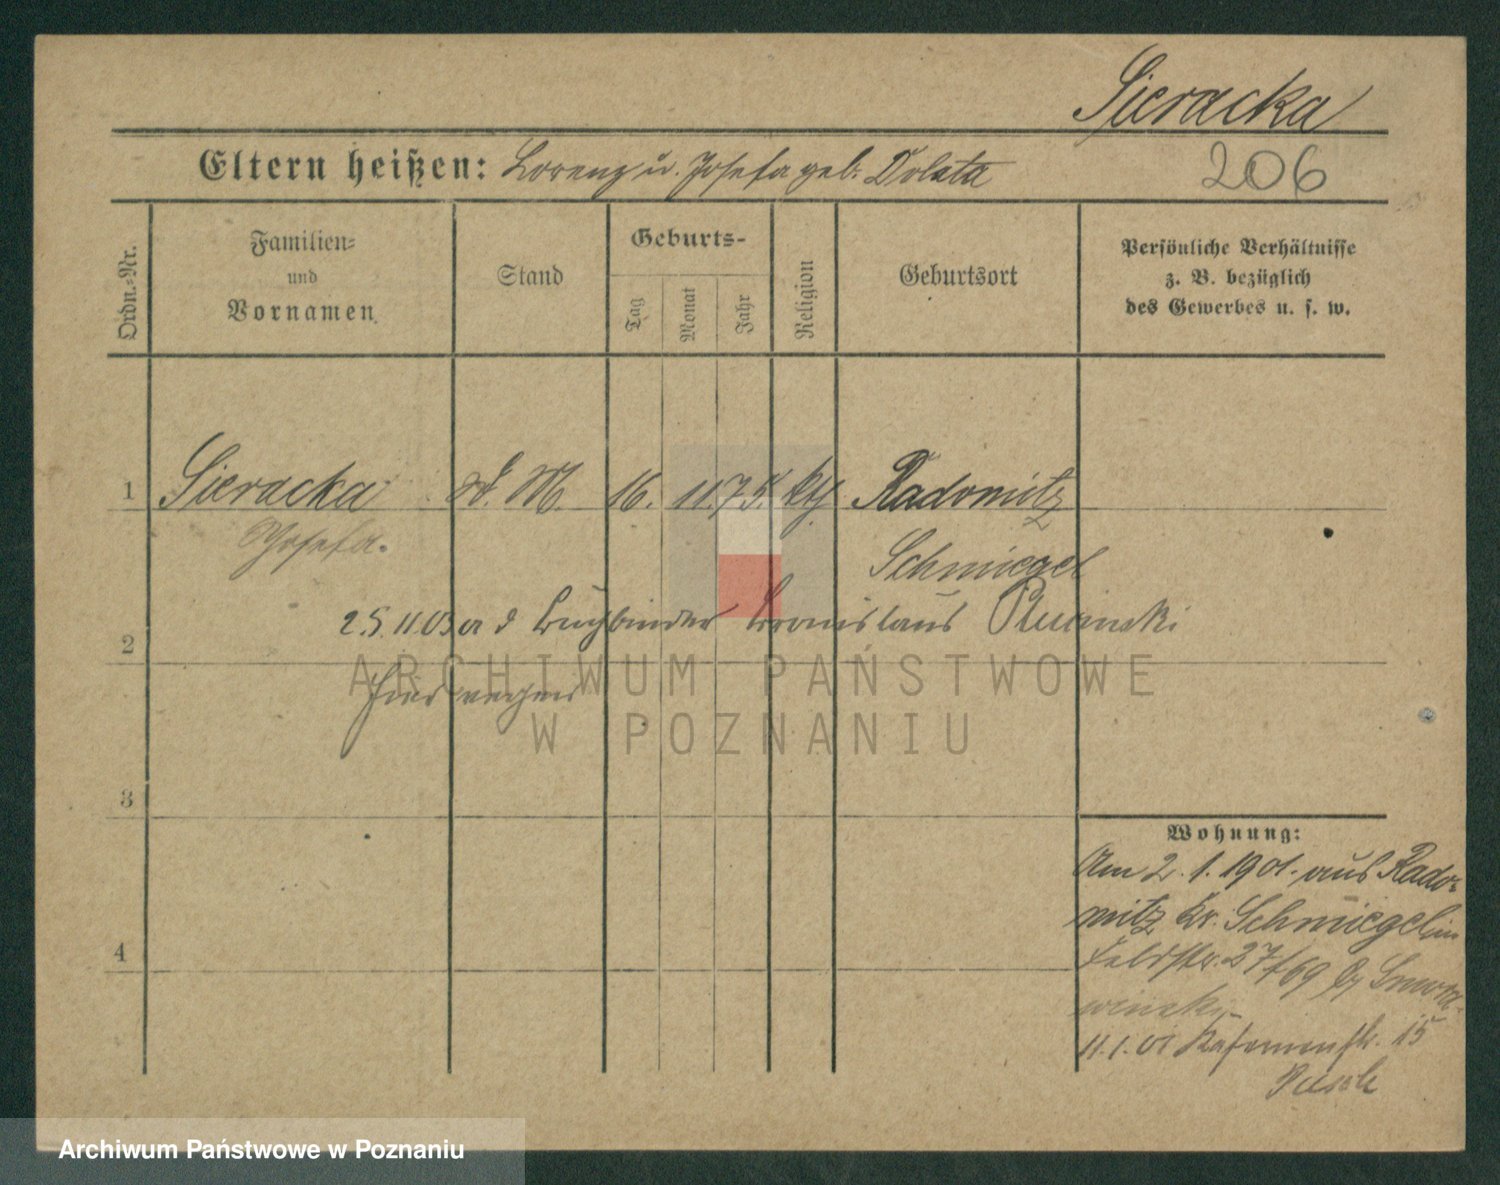 Sieracka
Eltern heißen: Lorenz u. Josefa geb. Dolata
206
Ordn.-Nr.
Familien-
und
Vornamen.
Stand
Geburts-
Tag
Monat
Jahr
Religion
Geburtsort
Persönliche Verhältnisse
z. B. bezüglich
des Gewerbes u. s. w.
1 Sieracka d. M. 16. 11. 75. kth Radomitz
Josefa.
Schmiegel
25.11.03 d Buchbinder Bronislaus Rucinski
2
hier
3
Wohnung:
Am 2. 1. 1901. aus Rado-
mitz Kr. Schmiegel in
4
Feldstr. 27/69 by Smora-
winski
11.1.01 15
ARCHIWUM PAŃSTWOWE
W POZNANIU
Archiwum Państwowe w Poznaniu